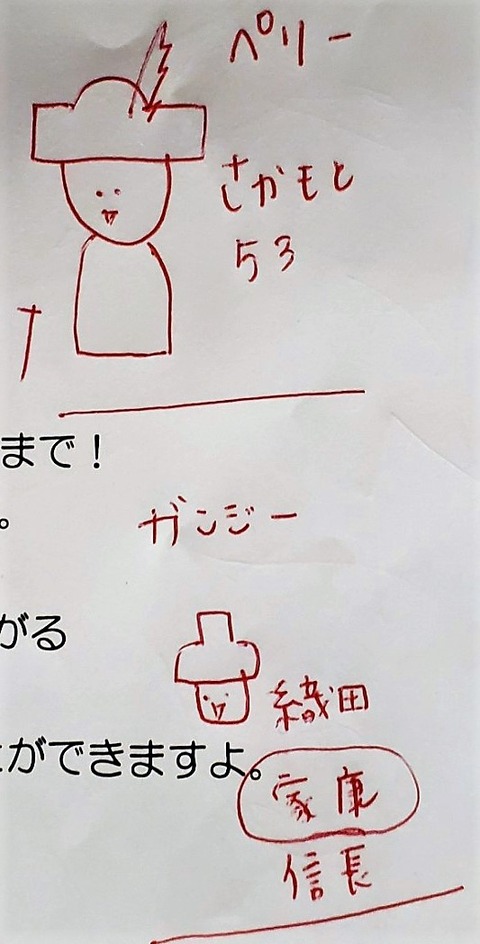 ペリー
さかもと
53
まで！
。
ガンジー
がる
織田
とができますよ。
家康
信長